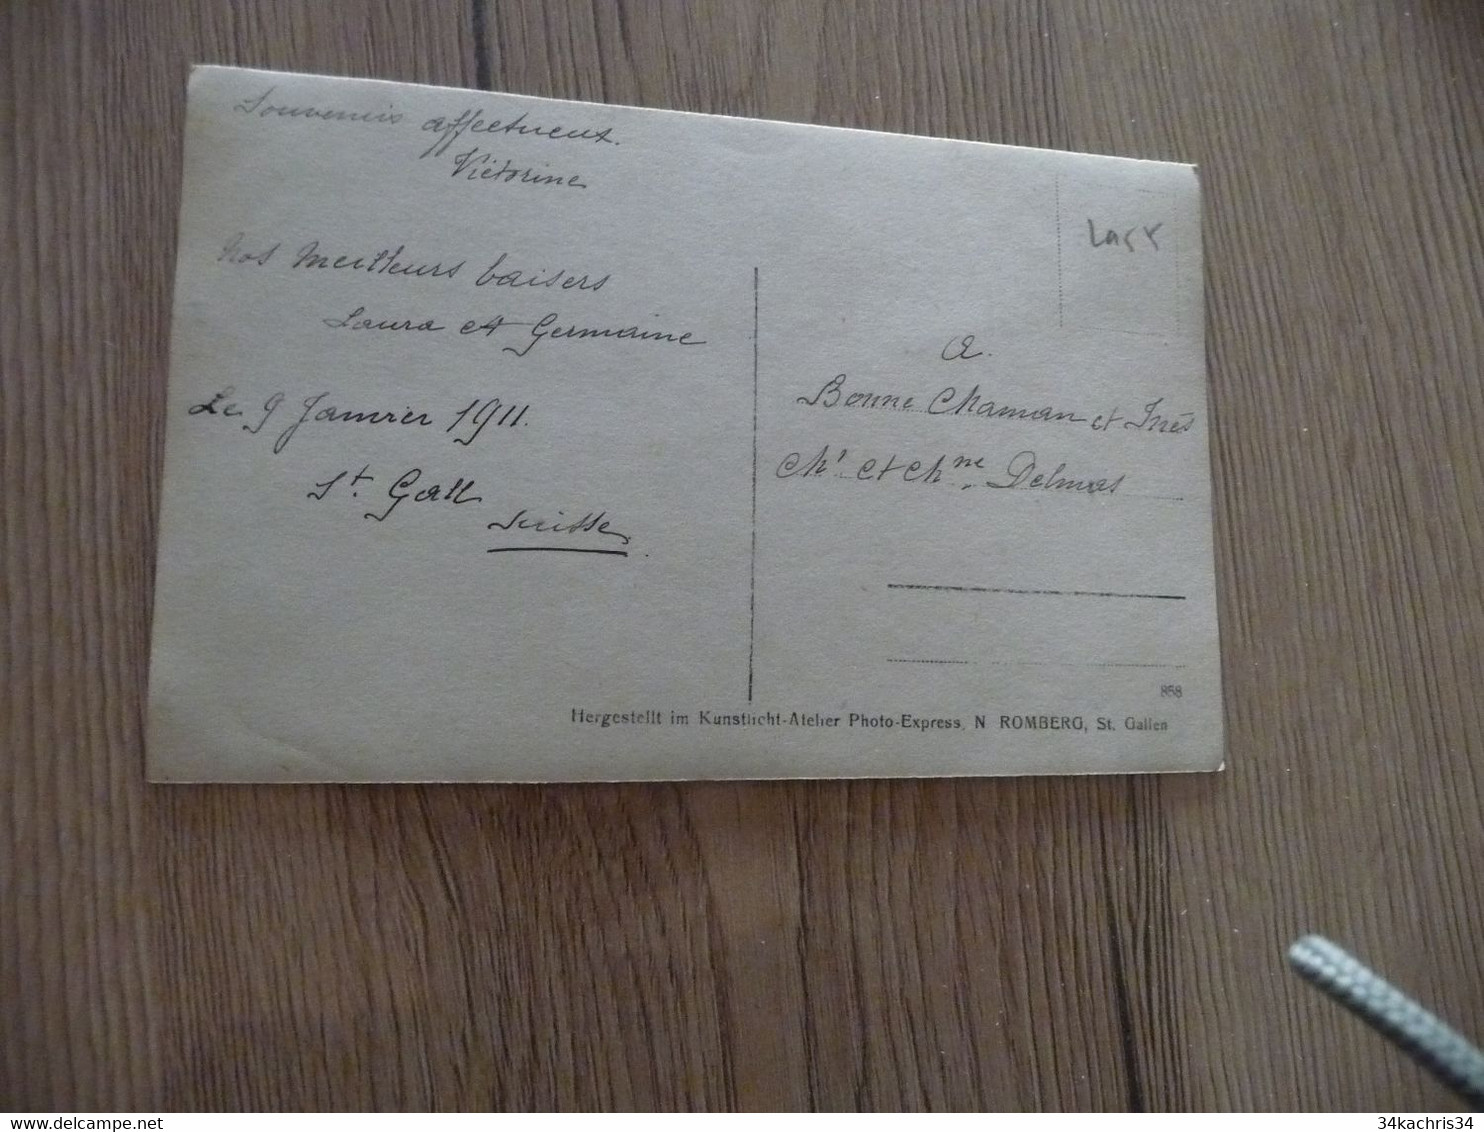 Souvenirs affectueux.
Victorine
Nos meilleurs baisers
Laura et Germaine
Le 9 Janvier 1911.
St. Gall
Suisse
A.
Bonne Maman et Inès
Mr et Mme Delmas
858
Hergestellt im Kunstlicht-Atelier Photo-Express, N. ROMBERG, St. Gallen
34kachris34